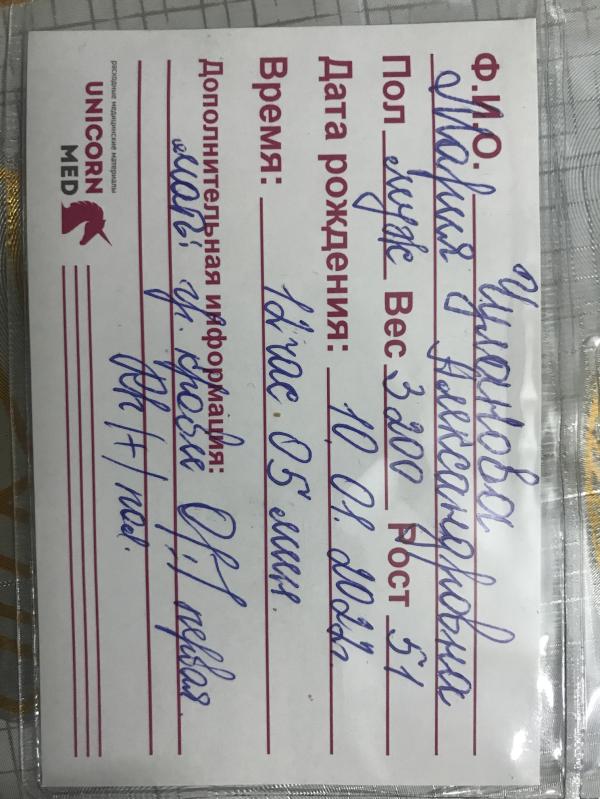 Ф.И.О. Чуланова
Мария Александровна
Пол муж Вес 3200 Рост 51
Дата рождения: 10.01.2022г.
Время: 12 час. 05 мин.
Дополнительная информация:
мать гр. крови O(I) первая.
Rh (+) пол.
расходные медицинские материалы
UNICORN
MED